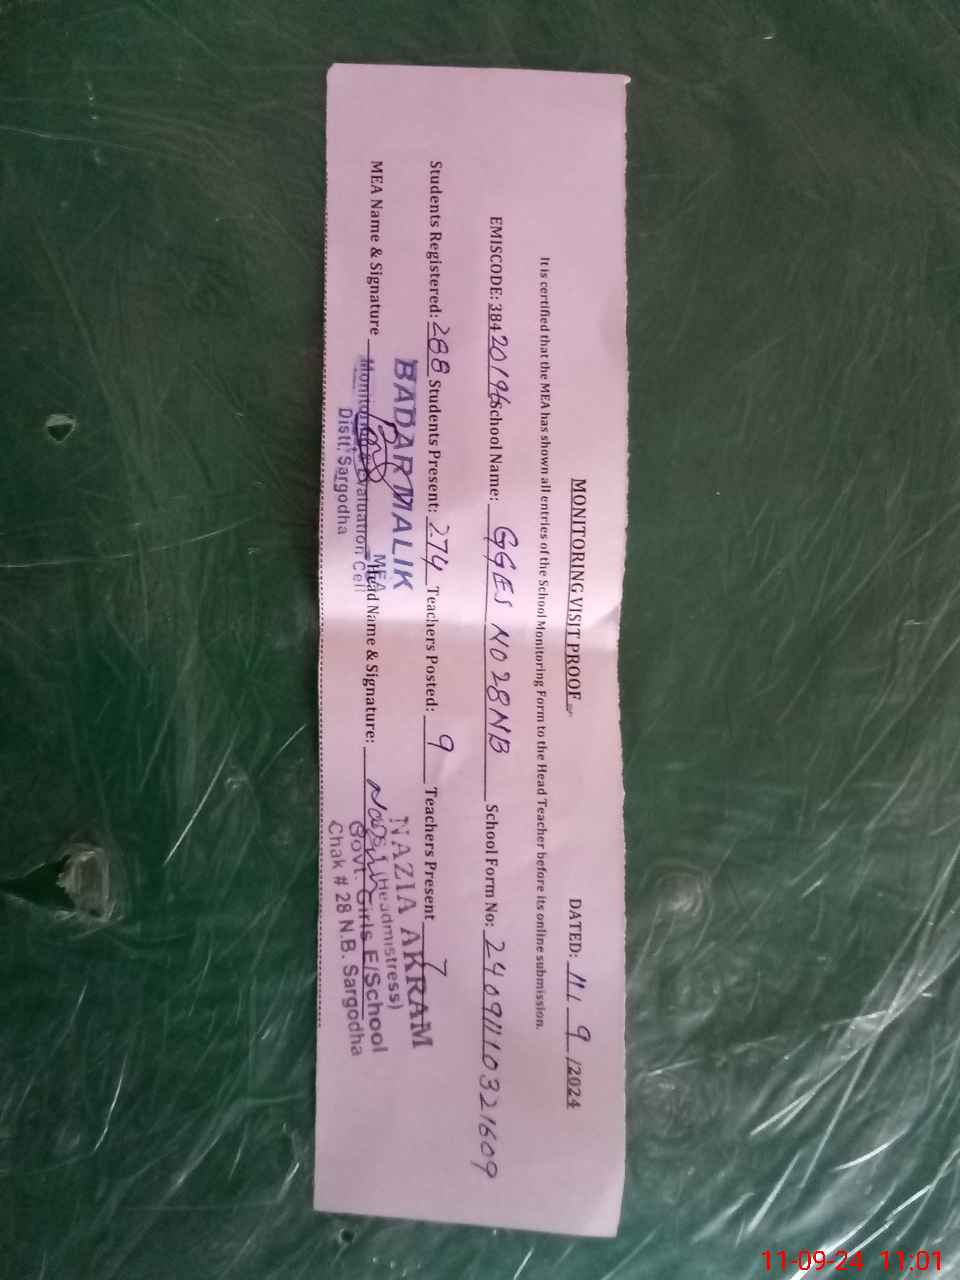 MONITORING VISIT PROOF
DATED: 11/9/2024
It is certified that the MEA has shown all entries of the School Monitoring Form to the Head Teacher before its online submission.
EMISCODE: 384 School Name: GGES NO 28NB School Form No: 240911110321609
Students Registered: 288 Students Present: 274 Teachers Posted: 9 Teachers Present 7
MEA Name & Signature Head Name & Signature:
BADAR MALIK
MEA
Monitoring & Evaluation Cell
Distt. Sargodha
NAZIA AKRAM
(Headmistress)
Govt. Girls E/School
Chak # 28 N.B. Sargodha
11-09-24 11:01